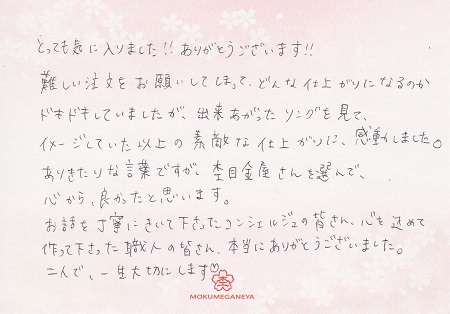 とっても気に入りました!! ありがとうございます!!
難しい注文をお願いしてしまって、どんな仕上がりになるのか
ドキドキしていましたが、出来あがったリングを見て、
イメージしていた以上の素敵な仕上がりに、感動しました。
ありきたりな言葉ですが、杢目金屋さんを選んで、
心から、良かったと思います。
お話を丁寧にきいて下さったコンシェルジュの皆さん、心を込めて
作って下さった職人の皆さん、本当にありがとうございました。
二人で、一生大切にします♡
MOKUMEGANEYA